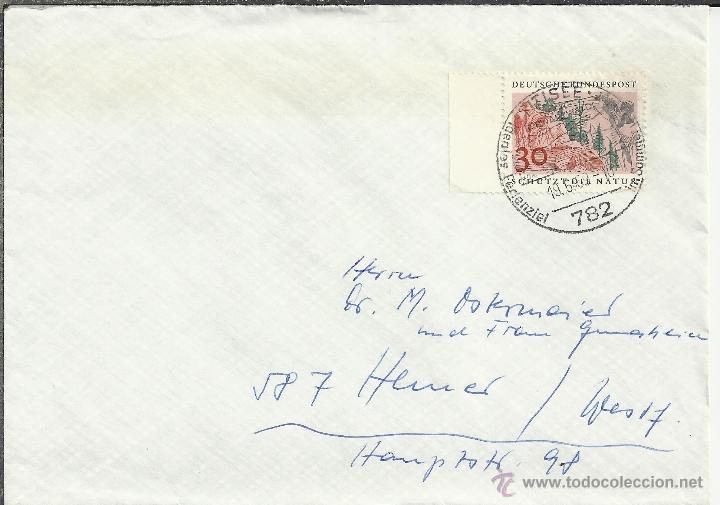 DEUTSCHE BUNDESPOST
30
SCHÜTZT DIE NATUR
TITISEE
ideales Ferienziel
782
Herrn
Dr. M. Ostermaier
und Frau
587 Hemer / Westf.
Hauptstr. 98
www.todocoleccion.net